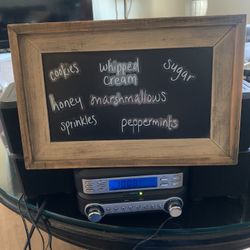 cookies whipped cream Sugar
honey marshmallows
sprinkles peppermints